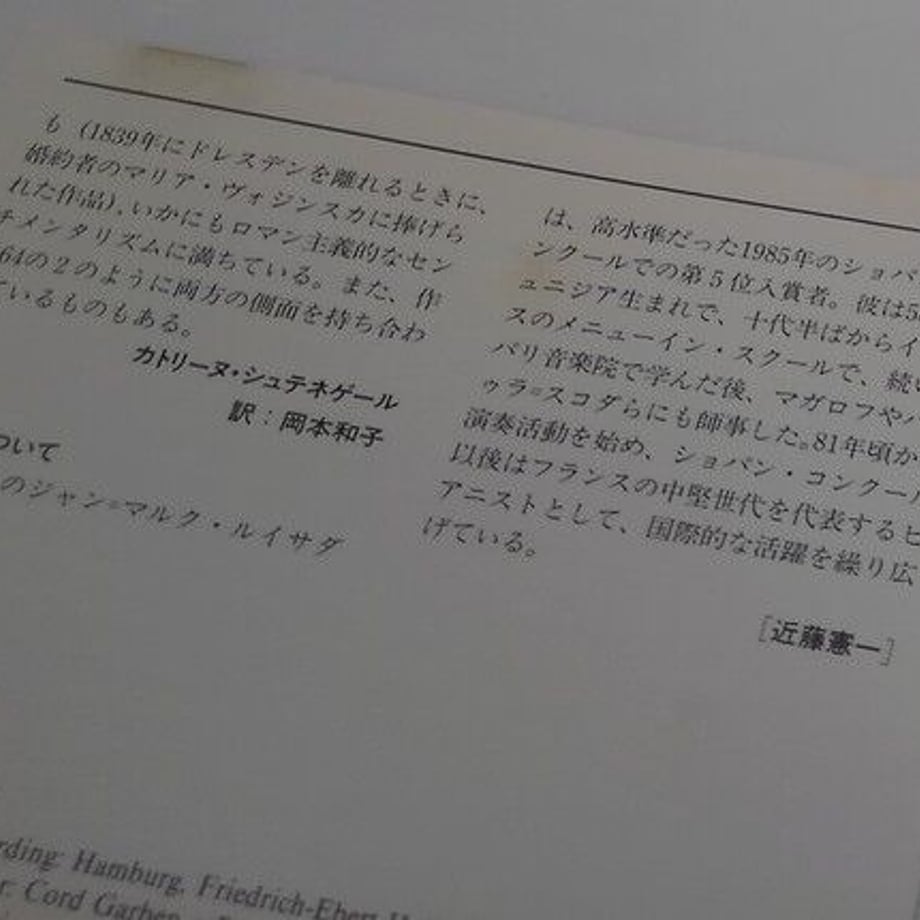 も(1839年にドレスデンを離れるときに、
婚約者のマリア・ヴォジンスカに捧げら
れた作品)、いかにもロマン主義的なセン
チメンタリズムに満ちている。また、作
64の2のように両方の側面を持ち合わ
ているものもある。
カトリーヌ・シュテネゲール
訳：岡本和子
ついて
のジャン=マルク・ルイサダ
は、高水準だった1985年のショパ
ンクールでの第5位入賞者。彼は5
ュニジア生まれで、十代半ばからイ
スのメニューイン・スクールで、続
パリ音楽院で学んだ後、マガロフや
ゥラ=スコダらにも師事した。81年頃か
演奏活動を始め、ショパン・コンクー
以後はフランスの中堅世代を代表するピ
アニストとして、国際的な活躍を繰り広
げている。
[近藤憲一]
rding: Hamburg, Friedrich-Ebert-
r: Cord Garben